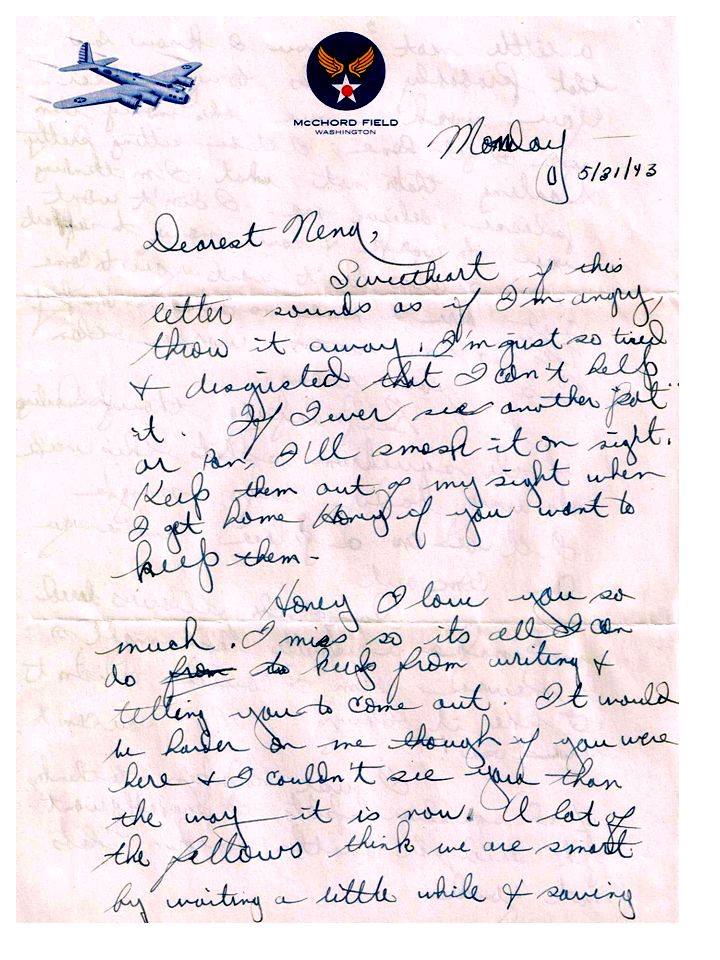 McCHORD FIELD
WASHINGTON
Monday
5/31/43
Dearest Nena,
Sweetheart if this
letter sounds as if I'm angry,
throw it away. I'm just so tired
& disgusted that I can't help
it. If I ever see another pot
or pan, I'll smash it on sight.
Keep them out of my sight when
I get home, Honey if you want to
keep them-
Honey I love you so
much. I miss so its all I can
do from to keep from writing &
telling you to come out. It would
be harder on me though if you were
here & I couldn't see you than
the way it is now. A lot of
the fellows think we are smart
by waiting a little while & saving